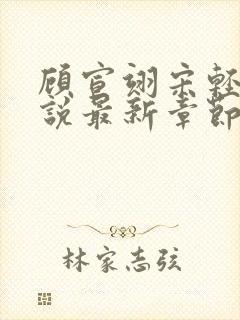 顾宣翊宋轻
说最新章节
林家志弦